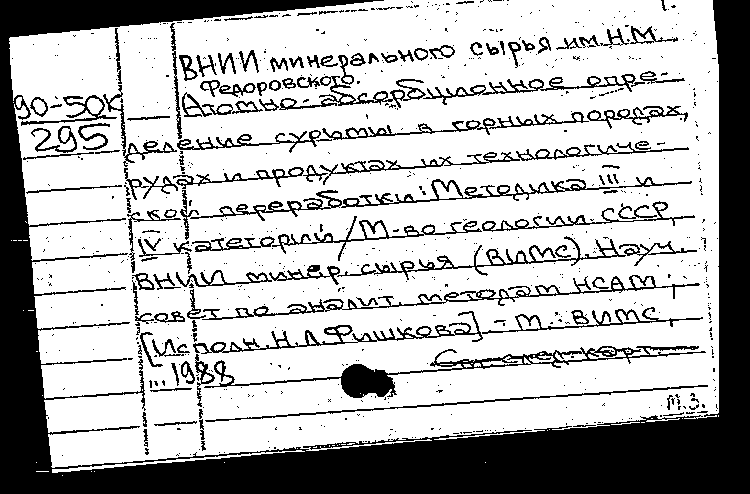 1.
ВНИИ минерального сырья им. Н.М.
Федоровского.
90-50К
295
Атомно-абсорбционное опре-
деление сурьмы в горных породах,
рудах и продуктах их технологиче-
ской переработки: Методика III и
IV категорий / М-во геологии СССР,
ВНИИ минер. сырья (ВИМС). Науч.
совет по аналит. методам НСАМ;
[Исполн. Н.Л. Фишкова] - М.: ВИМС,
... 1988
См. след. карт.
М.З.